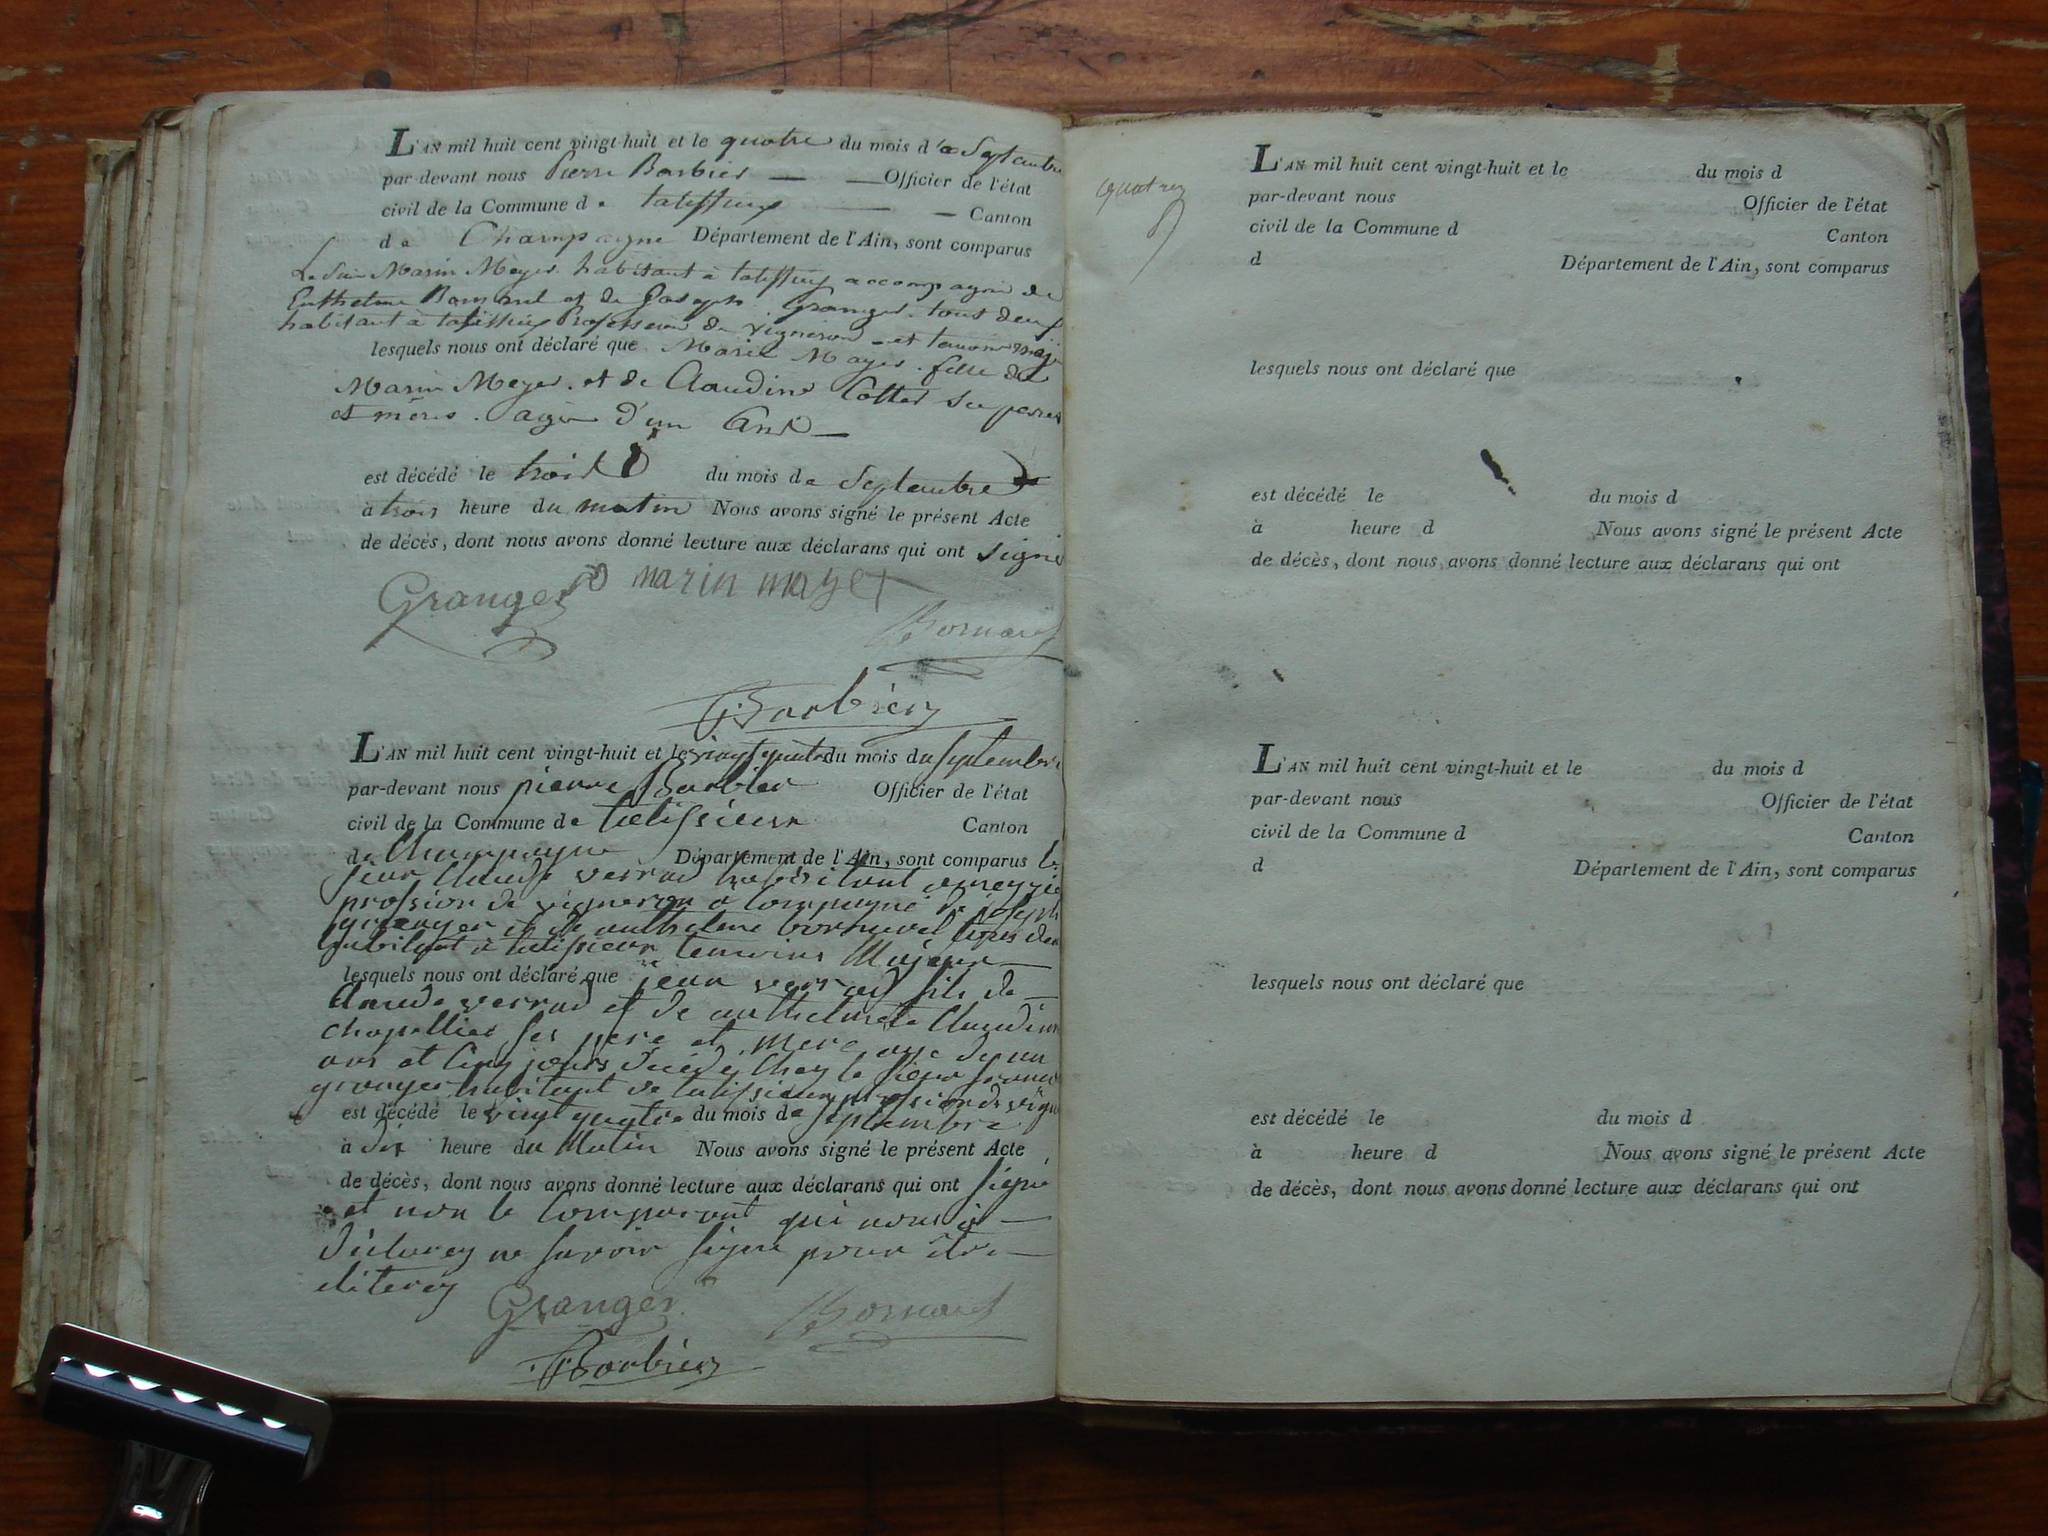 L'AN mil huit cent vingt-huit et le quatre du mois d'e Septembre
par-devant nous Pierre Barbier Officier de l'état
civil de la Commune de Canton
de Champagne Département de l'Ain, sont comparus
Le Sieur Marin Meyer habitant à accompagné de
Bornarel et de Joseph Granger tous deux
habitant à Profession de vigneron et temoins
lesquels nous ont déclaré que Marie Mayer fille de
Marin Meyer et de Claudine Cottet
et mères agée d'un Ans
est décédé le trois du mois de Septembre
à trois heure du matin Nous avons signé le présent Acte
de décès, dont nous avons donné lecture aux déclarans qui ont signé
Granger marin mayet
Bornarel
Barbier
L'AN mil huit cent vingt-huit et le vingt quatre du mois du septembre
par-devant nous pierre Barbier Officier de l'état
civil de la Commune de talissieux Canton
de Champagne Département de l'Ain, sont comparus le
sieur Claude verrad habitant
profession de vigneron a Compagné de joseph
granger et de anthelme bornarel tous deux
habitant à talissieux temoins Majeur
lesquels nous ont déclaré que jean verrad fils de
Claude verrad et de anthelmete Claudine
chapellier ses pere et mere age de un
ans et Cinq jours décédé Chez le sieur
granger habitant de talissieux profession de
est décédé le vingt quatre du mois de septembre
à dix heure du Matin Nous avons signé le présent Acte
de décès, dont nous avons donné lecture aux déclarans qui ont signé
et non le Comparant qui nous à
déclarey ne savoir signe pour être
eliterey
Granger Bornarel
Barbier
L'AN mil huit cent vingt-huit et le du mois d
par-devant nous Officier de l'état
civil de la Commune d Canton
d Département de l'Ain, sont comparus
lesquels nous ont déclaré que
est décédé le du mois d
à heure d Nous avons signé le présent Acte
de décès, dont nous avons donné lecture aux déclarans qui ont
L'AN mil huit cent vingt-huit et le du mois d
par-devant nous Officier de l'état
civil de la Commune d Canton
d Département de l'Ain, sont comparus
lesquels nous ont déclaré que
est décédé le du mois d
à heure d Nous avons signé le présent Acte
de décès, dont nous avons donné lecture aux déclarans qui ont